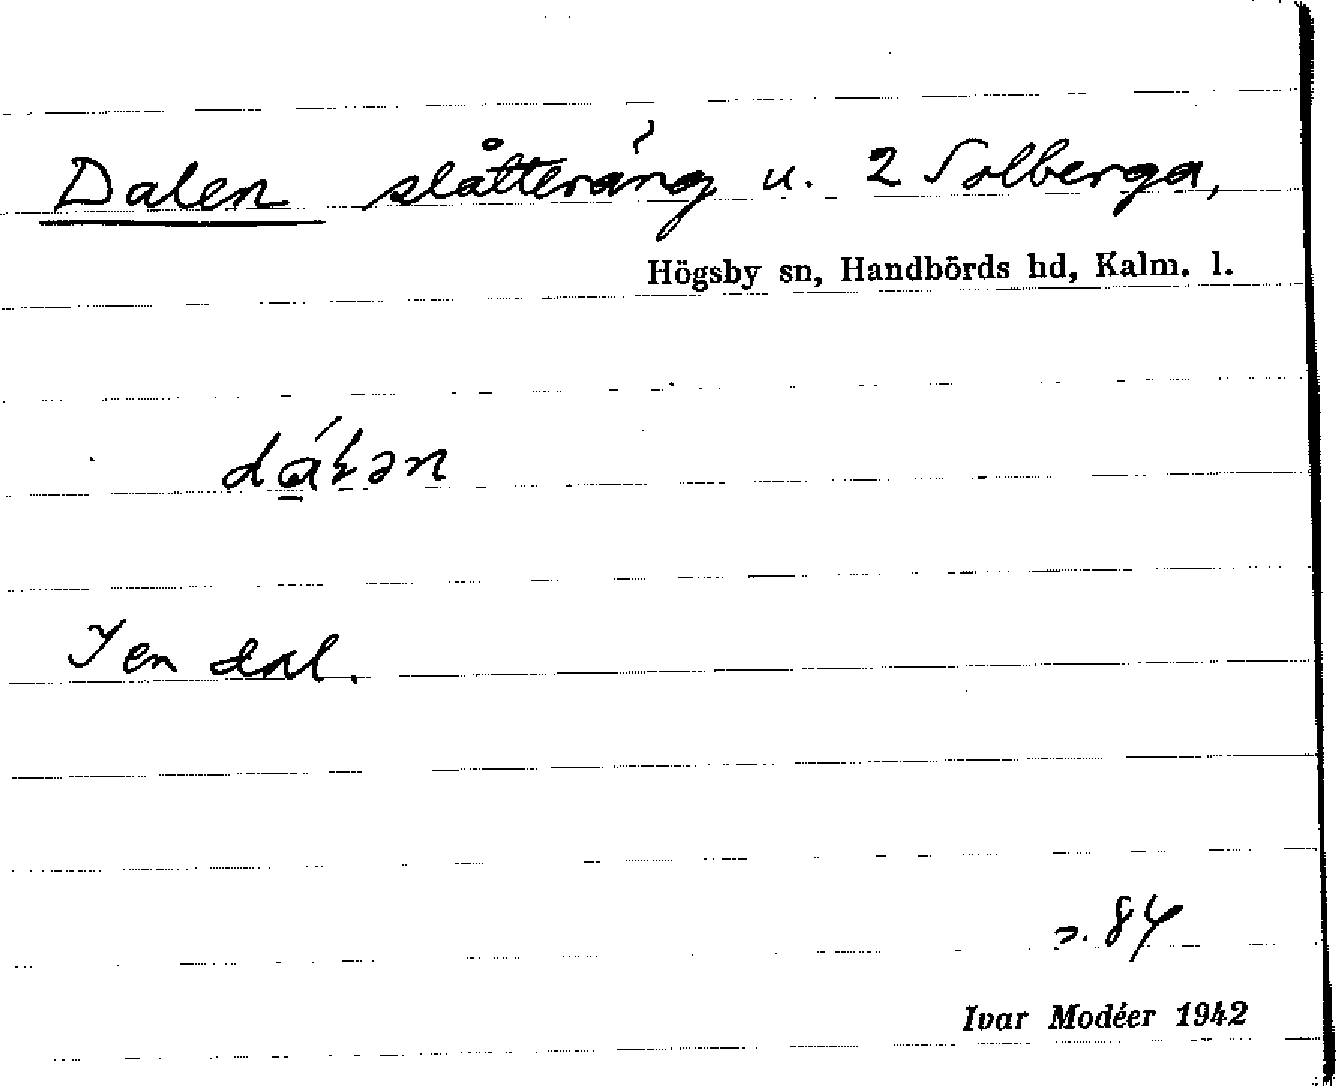 Dalen slåtteräng u. 2 Solberga,
Högsby sn, Handbörds hd, Kalm. l.
dáɫən
I en dal.
s. 84
Ivar Modéer 1942